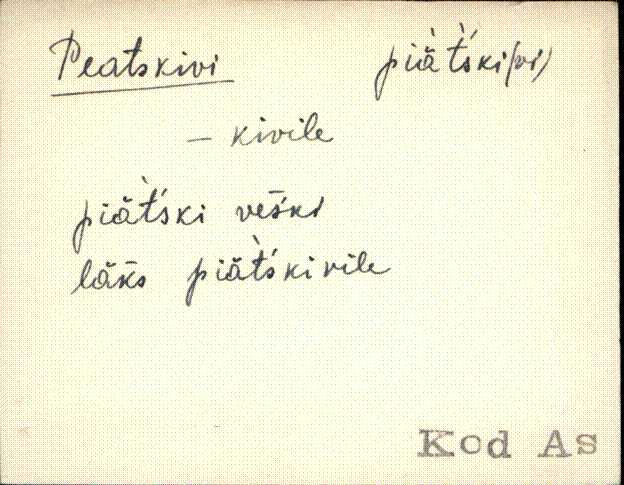 Peatskivi piä̀t́ski(vi)
– kivile
piä̀t́ski veški
läks piä̀t́skivile
Kod As